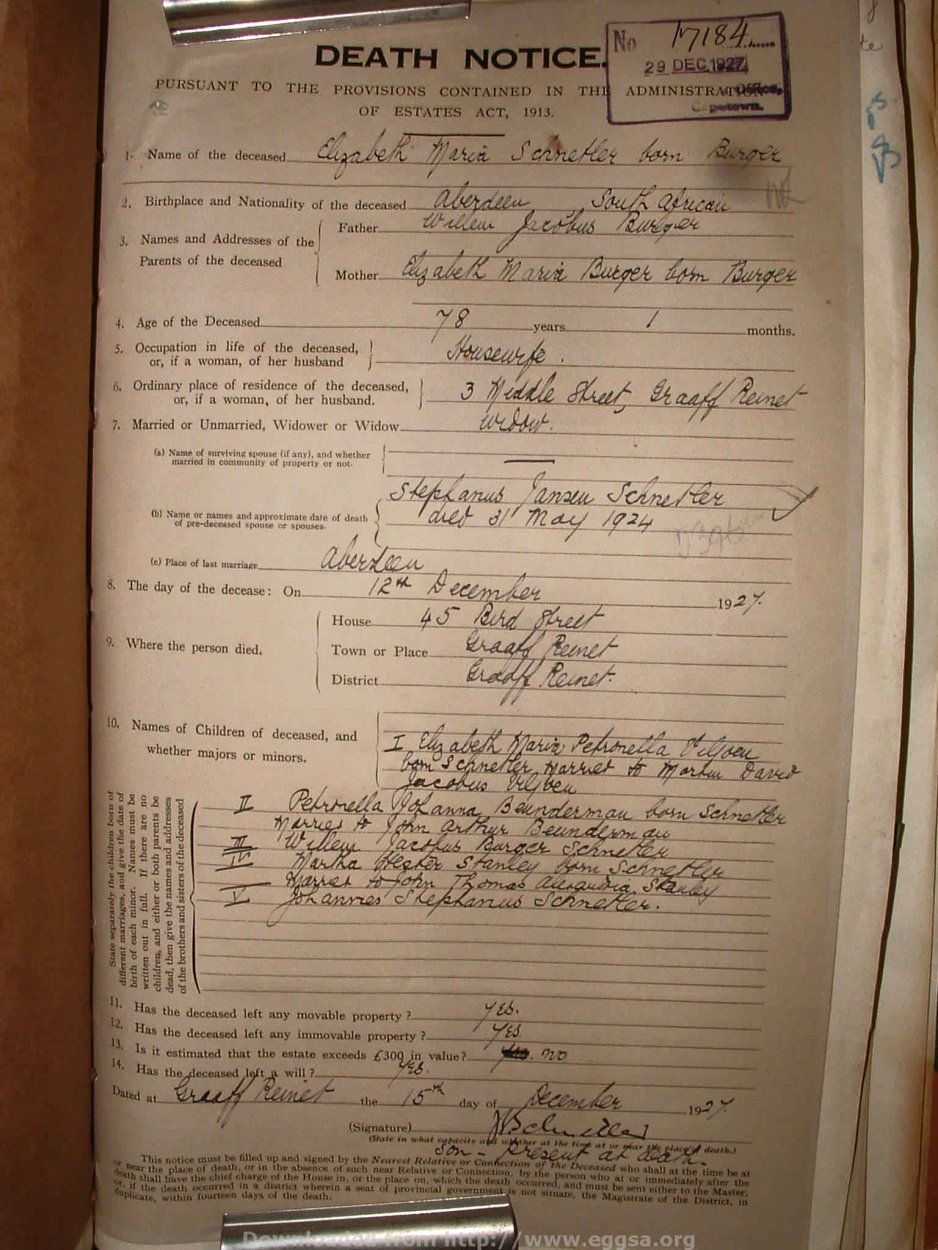 DEATH NOTICE.
No 17184
29 DEC 1927
Office,
Capetown.
PURSUANT TO THE PROVISIONS CONTAINED IN THE ADMINISTRATION
OF ESTATES ACT, 1913.
1. Name of the deceased Elizabeth Maria Schnetler born Burger
2. Birthplace and Nationality of the deceased Aberdeen South African
3. Names and Addresses of the Parents of the deceased
Father Willem Jacobus Burger
Mother Elizabeth Maria Burger born Burger
4. Age of the Deceased 78 years 1 months.
5. Occupation in life of the deceased,
or, if a woman, of her husband Housewife.
6. Ordinary place of residence of the deceased,
or, if a woman, of her husband. 3 Middle Street, Graaff Reinet
7. Married or Unmarried, Widower or Widow Widow.
(a) Name of surviving spouse (if any), and whether
married in community of property or not. —
Stephanus Jansen Schnetler
(b) Name or names and approximate date of death
of pre-deceased spouse or spouses. died 31 May 1924
(c) Place of last marriage Aberdeen
8. The day of the decease: On 12th December 1927.
9. Where the person died.
House 45 Bird Street
Town or Place Graaff Reinet
District Graaff Reinet.
10. Names of Children of deceased, and
whether majors or minors.
I Elizabeth Maria Petronella Viljoen
born Schnetler Married to Martin David
Jacobus Viljoen
II Petronella Johanna Beunderman born Schnetler
Married to John Arthur Beunderman
III Willem Jacobus Burger Schnetler
IV Martha Hester Stanley born Schnetler
Married to John Thomas Stanley
V Johannes Stephanus Schnetler.
State separately the children born of
different marriages, and give the date of
birth of each minor. Names must be
written out in full. If there are no
children, and either or both parents be
dead, then give the names and addresses
of the brothers and sisters of the deceased
11. Has the deceased left any movable property? Yes.
12. Has the deceased left any immovable property? Yes
13. Is it estimated that the estate exceeds £300 in value? no
14. Has the deceased left a will? Yes.
Dated at Graaff Reinet the 15th day of December 1927.
(Signature)
(State in what capacity and whether at the time at or near the place of death.)
Son - Present at death.
This notice must be filled up and signed by the Nearest Relative or Connection of the Deceased who shall at the time be at
or near the place of death, or in the absence of such near Relative or Connection, by the person who at or immediately after the
death shall have the chief charge of the House in, or the place on, which the death occurred, and must be sent either to the Master,
or, if the death occurred in a district wherein a seat of provincial government is not situate, the Magistrate of the District, in
duplicate, within fourteen days of the death.
Downloaded from http://www.eggsa.org